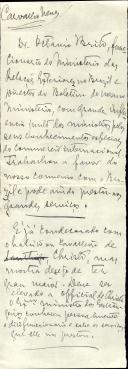 Carvalho Neves
Dr. Octavio Brito, func-
cionario do Ministerio das
Relações Exteriores no Brazil e
director do Boletim do mesmo
Ministerio, com grande influ-
encia junto dos ministros pelos
seus conhecimentos especiaes
do commercio internacional.
Trabalhou a favor do
nosso commercio com o Bra-
zil e pode ainda prestar-nos
grandes serviços.
É já condecorado com
o habito ou Cavalleiro de
Christo, mas
mostra desejo de ter
grau maior. Deve ser
elevado a official de Christo
O ministro dos Estran-
geiros conhece pessoalmente
o funccionario e sabe os serviços
que elle nos prestou.